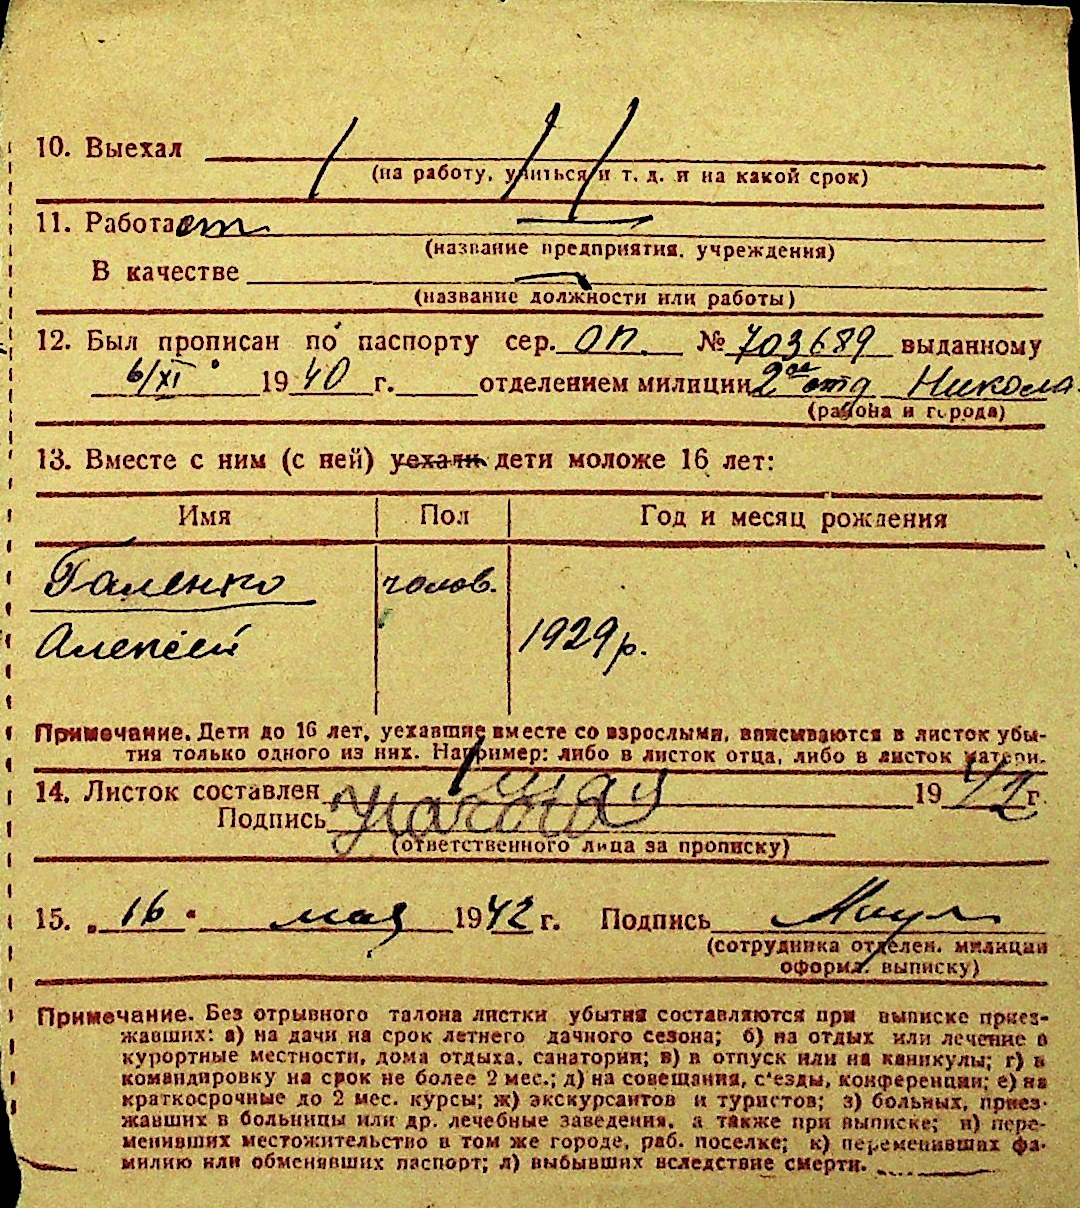 10. Выехал
(на работу, учиться и т. д. и на какой срок)
11. Работает
(название предприятия, учреждения)
В качестве
(название должности или работы)
12. Был прописан по паспорту сер. ОП. № 703689 выданному
6/XI 1940 г. отделением милиции 2ое отд Никола
(района и города)
13. Вместе с ним (с ней) уехали дети моложе 16 лет:
Имя Пол Год и месяц рождения
Галенко чолов.
Алексей 1929 р.
Примечание. Дети до 16 лет, уехавшие вместе со взрослыми, вписываются в листок убы-
тия только одного из них. Например: либо в листок отца, либо в листок матери.
14. Листок составлен мая 1942 г.
Подпись
(ответственного лица за прописку)
15. „16“ мая 1942 г. Подпись
(сотрудника отделен. милиции
оформл. выписку)
Примечание. Без отрывного талона листки убытия составляются при выписке приез-
жавших: а) на дачи на срок летнего дачного сезона; б) на отдых или лечение в
курортные местности, дома отдыха, санатории; в) в отпуск или на каникулы; г) в
командировку на срок не более 2 мес.; д) на совещания, с'езды, конференции; е) на
краткосрочные до 2 мес. курсы; ж) экскурсантов и туристов; з) больных, приез-
жавших в больницы или др. лечебные заведения, а также при выписке; и) пере-
менивших местожительство в том же городе, раб. поселке; к) переменивших фа-
милию или обменявших паспорт; л) выбывших вследствие смерти.